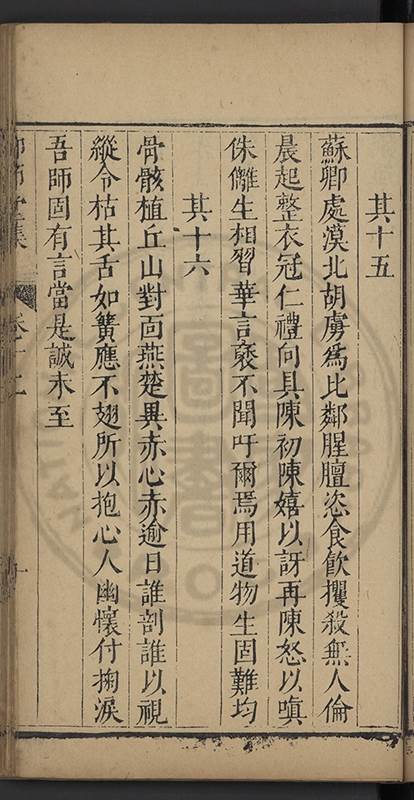 其十五
蘇卿處漠北胡虜爲比鄰腥膻恣食飲攫殺無人倫
晨起整衣冠仁禮向具陳初陳嬉以訝再陳怒以嗔
侏儺生相習華言褎不聞吁爾焉用道物生固難均
其十六
骨骸植丘山對面燕楚異赤心赤逾日誰剖誰以視
縱令枯其舌如簧應不翅所以抱心人幽懷付掬淚
吾師固有言當是誠未至